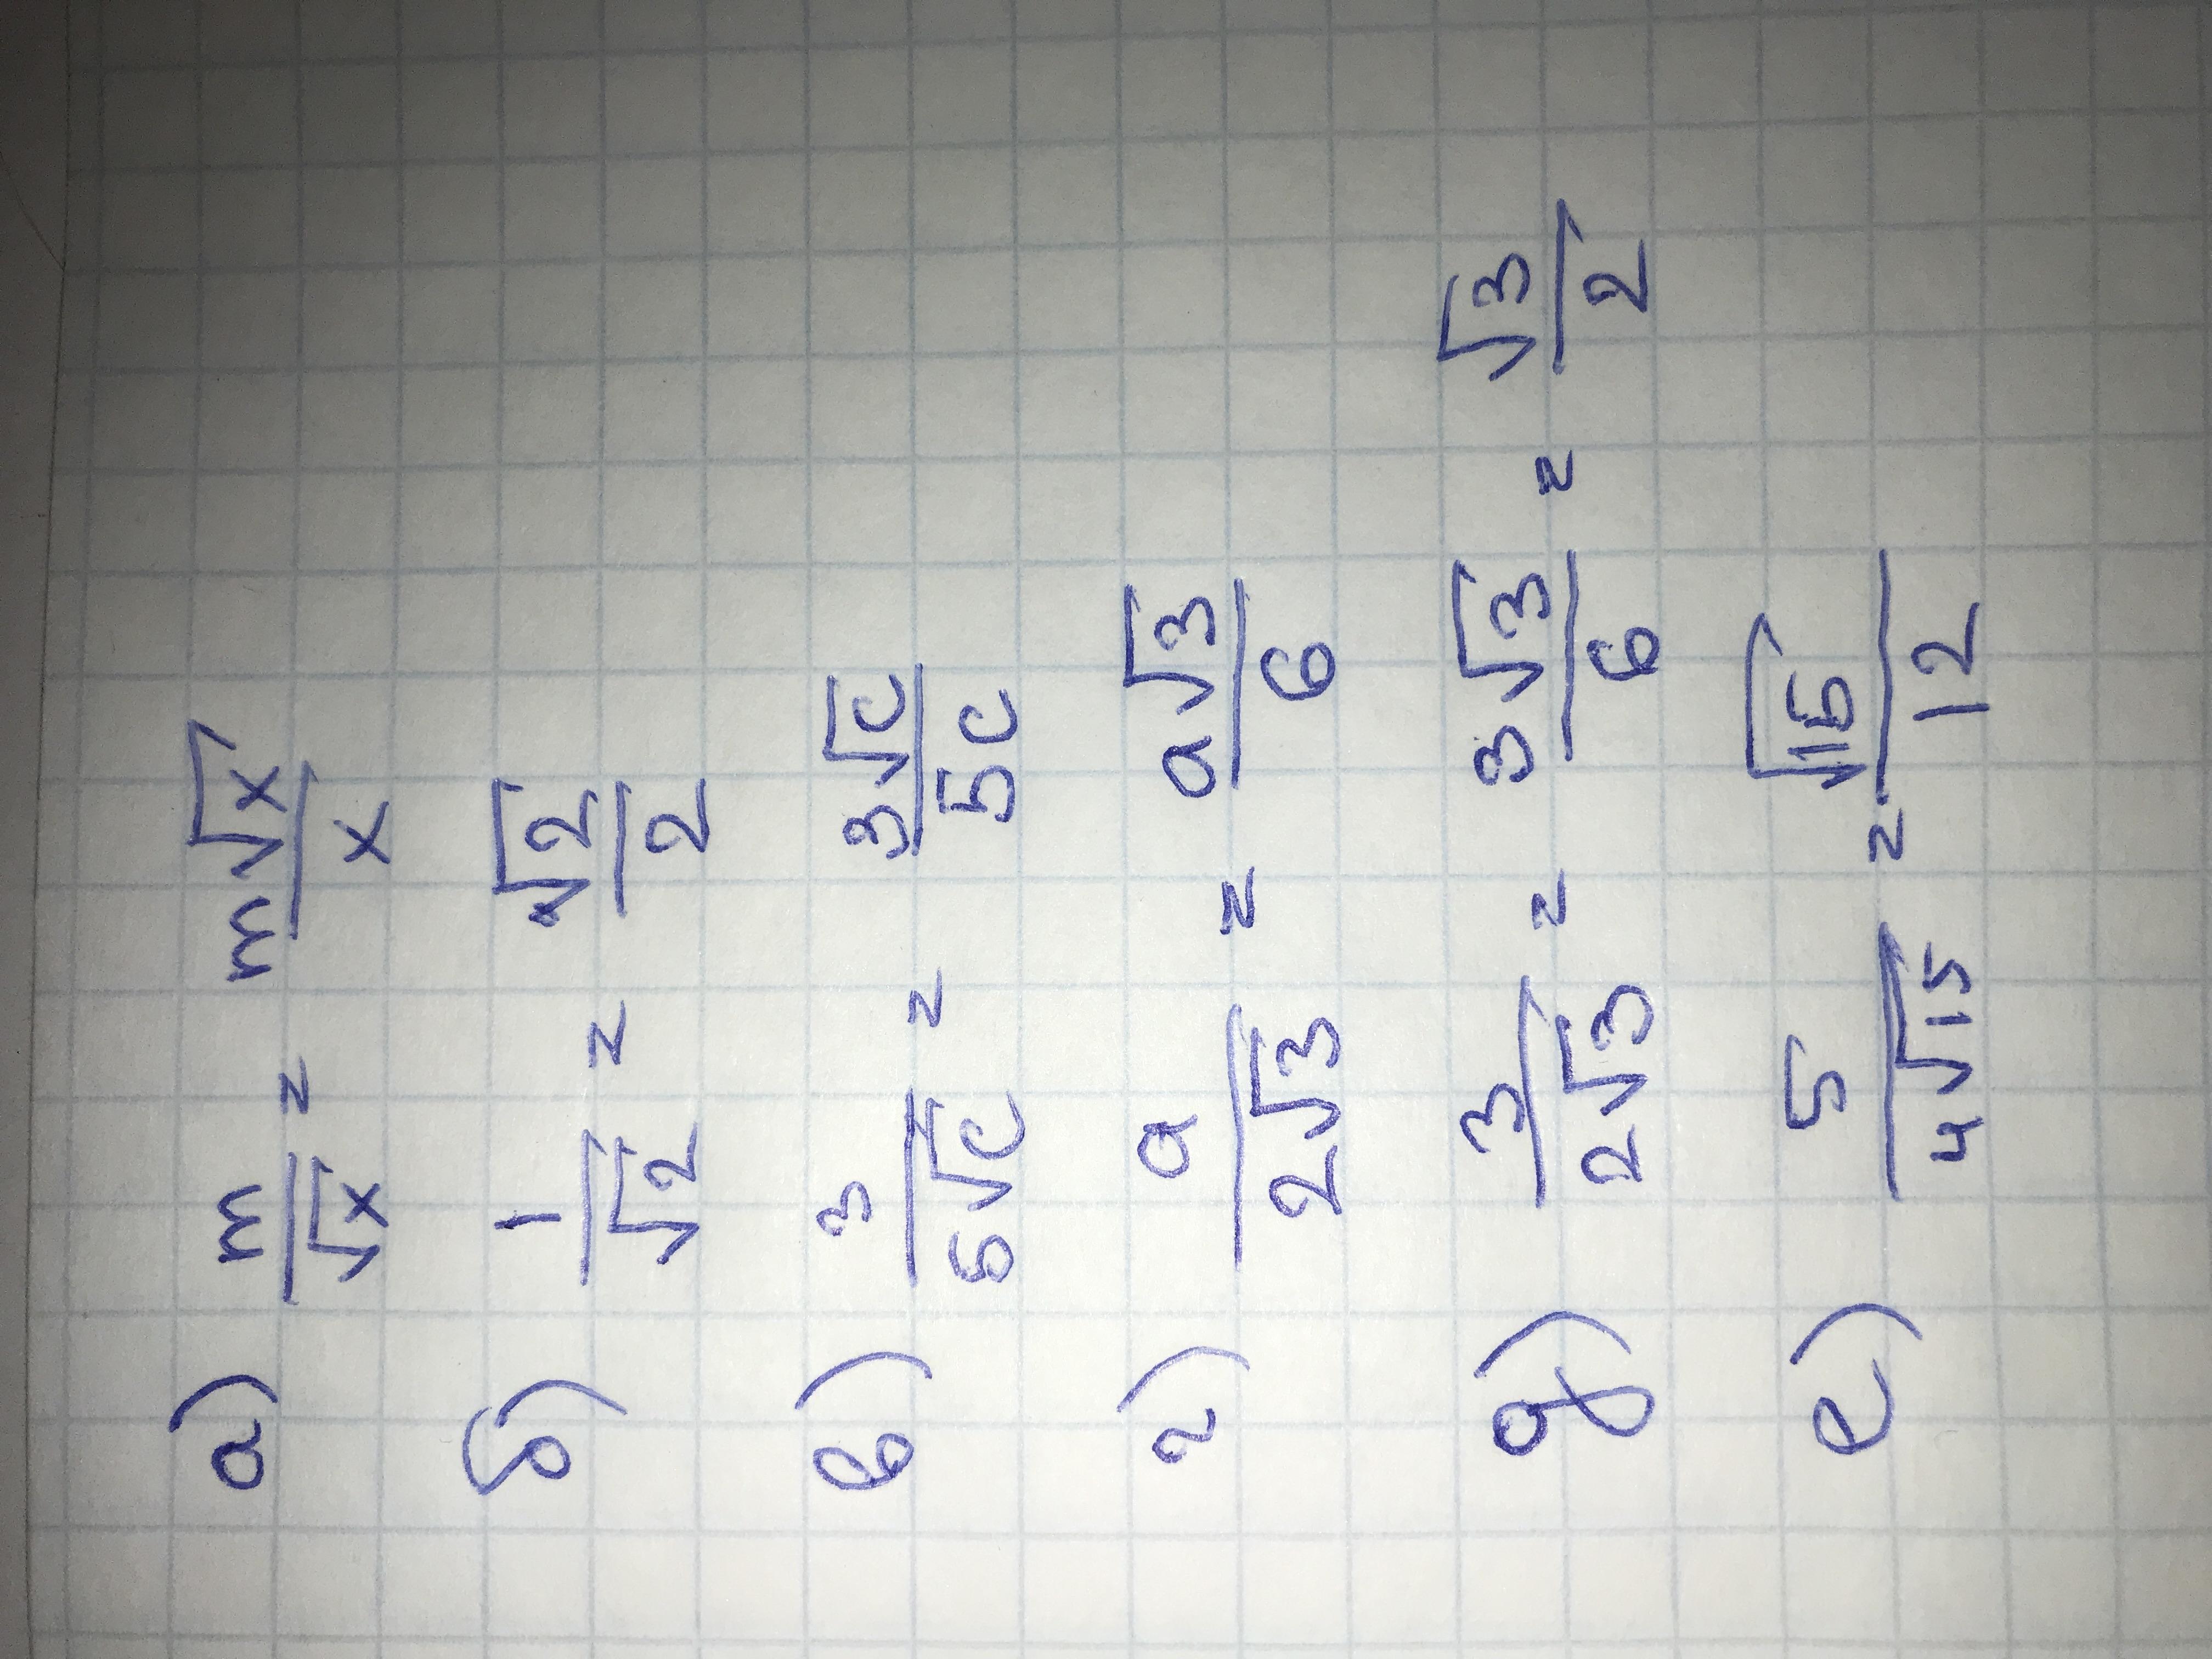 а) m/√x = m√x/x
б) 1/√2 = √2/2
в) 3/5√c = 3√c/5c
г) a/2√3 = a√3/6
д) 3/2√3 = 3√3/6 = √3/2
е) 5/4√15 = √15/12